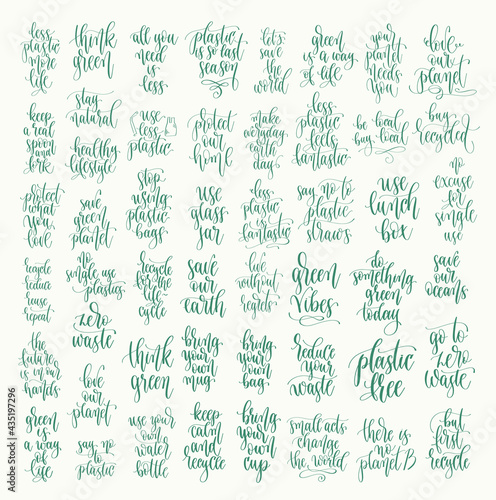 less
plastic
more
life
think
green
all you
need
is
less
plastic
is so last
season
let's
save
the
world
green
is a way
of life
your
planet
needs
you
love
our
planet
keep
a real
spoon
and
fork
stay
natural
healthy
lifestyle
use
less
plastic
protect
our
home
make
everyday
earth
day
less
plastic
feels
fantastic
be local
buy local
buy
recycled
protect
what
you
love
save
green
planet
stop
using
plastic
bags
use
glass
jar
less
plastic
is
fantastic
say no to
plastic
straws
use
lunch
box
no
excuse
for
single
use
recycle
reduce
reuse
repeat
no
single use
plastics
zero
waste
recycle
for the
life
cycle
save
our
earth
live
without
regrets
green
vibes
do
something
green
today
save
our
oceans
the
future
is in our
hands
love
our
planet
think
green
bring
your
own
mug
bring
your
own
bag
reduce
your
waste
plastic
free
go to
zero
waste
green
is a
way of
life
say no
to
plastic
use your
own
water
bottle
keep
calm
and
recycle
bring
your
own
cup
small acts
change
the world
there is
no
planet B
but
first
recycle
Adobe Stock | #435197296